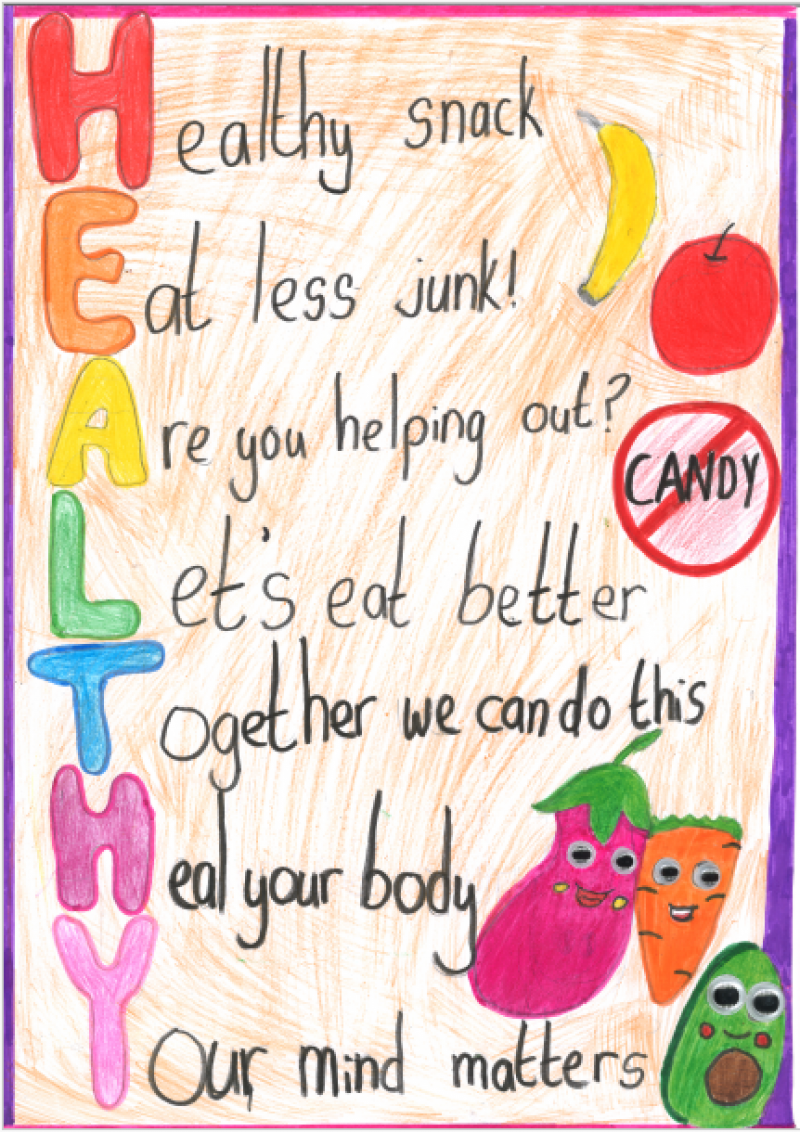 Healthy snack
Eat less junk!
Are you helping out?
CANDY
Let's eat better
Together we can do this
Heal your body
Your mind matters